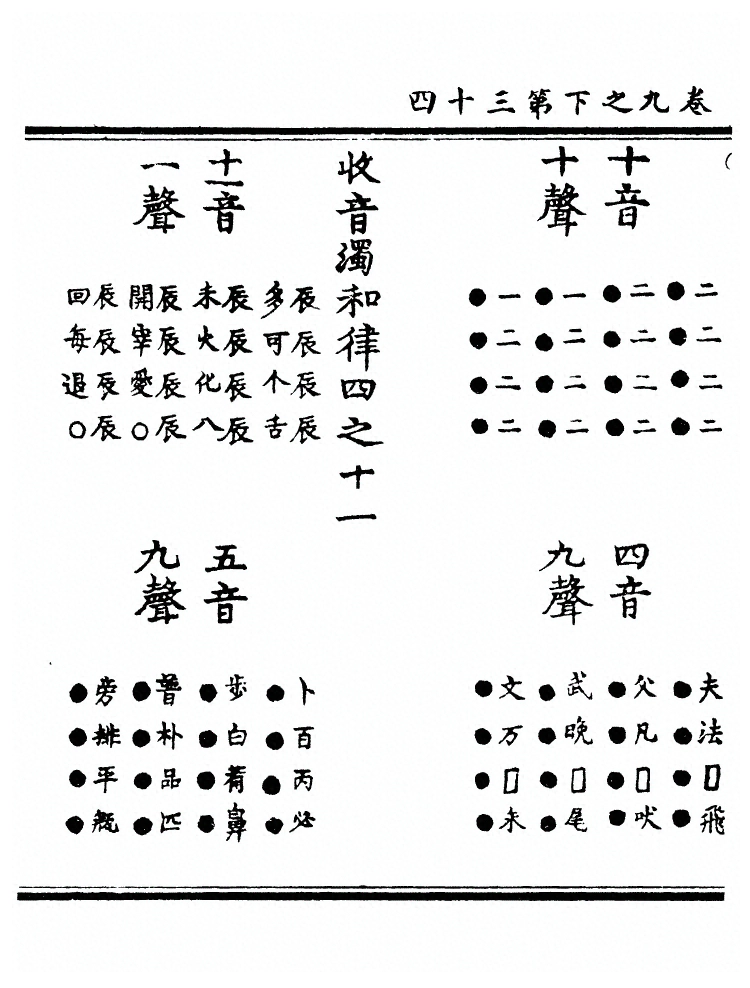 卷九之下第三十四
十音
十聲
二二二二
●●●●
二二二二
●●●●
一二二二
●●●●
一二二二
●●●●
四音
九聲
夫法□飛
●●●●
父凡□吠
●●●●
武晚□尾
●●●●
文万□未
●●●●
收音濁和律四之十一
十一音
一聲
辰辰辰辰
多可个舌
辰辰辰辰
禾火化八
辰辰辰辰
開宰愛○
辰辰辰辰
回每退○
五音
九聲
卜百丙必
●●●●
步白𤰇鼻
●●●●
普朴品匹
●●●●
旁排平瓶
●●●●